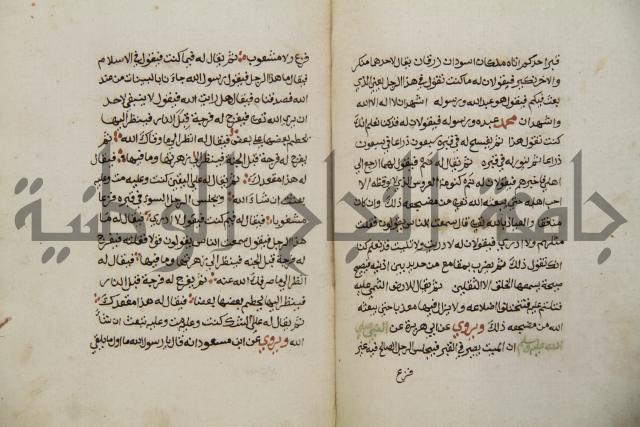 قبر احدكم اتاه ملكان اسودان زرقان يقال لاحدهما منكر
والاخر نكير فيقولان له ما كنت تقول في هذا الرجل يعني الذي
بعث فيكم فيقول هو عبد الله ورسوله اشهد ان لا اله الا الله
واشهد ان محمد عبده ورسوله فيقولان له قد كنا نعلم انك
كنت تقول هذا ثم يفسح له في قبره سبعون ذراعا في سبعون
ذراعا ثم ينور له في قبره ثم يقال له نم فيقول لهما ارجع الى
اهلي فاخبرهم فيقولان له نم كنومة العروس الذي لا يوقظه الا
احب اهله حتى يبعثه الله من مضجعه ذلك وان كان
منافقا والعياذ بالله قال سمعت الناس يقولون فقلت
مثلهم ولا ادري فيقولان له لا دريت ولا تليت قد نعلم كنا
انك تقول ذلك ثم يضرب بمقامع من حديد بين اذنيه فيصيح
صيحة يسمعها الخلق الا الثقلين ثم يقال للارض التئمي عليه
فتلتئم عليه فتختلف اضلاعه ولا يزال فيها معذبا حتى يبعثه
الله من مضجعه ذلك ويروي عن ابي هريرة عن النبي صلى
الله عليه وسلم ان الميت يصير في القبر فيجلس الرجل الصالح في قبره غير
فزع
فزع ولا مشغوب ثم يقال له فيما كنت فيقول في الاسلام
فيقال ما هذا الرجل فيقول رسول الله جاءنا بالبينات من عند
الله فصدقناه فيقال هل رايت الله فيقول لا ينبغي لاحد
ان يرى الله فيفرج له فرجة قبل النار فينظر اليها
يحطم بعضها على بعض فيقال له انظر الى ما وقاك الله ثم
يفرج له فرجة قبل الجنة فينظر الى زهرتها وما فيها فيقال
له هذا مقعدك ثم يقال له على اليقين كنت وعليه مت وعليه
تبعث ان شاء الله ويجلس الرجل السوء في قبره فزعا
مشغوبا فيقال له فيما كنت فيقول لا ادري فيقال له ما
هذا الرجل فيقول سمعت الناس يقولون قولا فقلته فيفرج
له فرجة قبل الجنة فينظر الى زهرتها وما فيها فيقال له
انظر الى ما صرفك الله عنه ثم يفرج له فرجة قبل النار
فينظر اليها يحطم بعضها بعضا فيقال له هذا مقعدك
ثم يقال له على الشك كنت وعليه مت وعليه تبعث ان شاء
الله ويروي عن ابن مسعود انه قال يا رسول الله ما اول ما يلقى
جامعة النجاح الوطنية